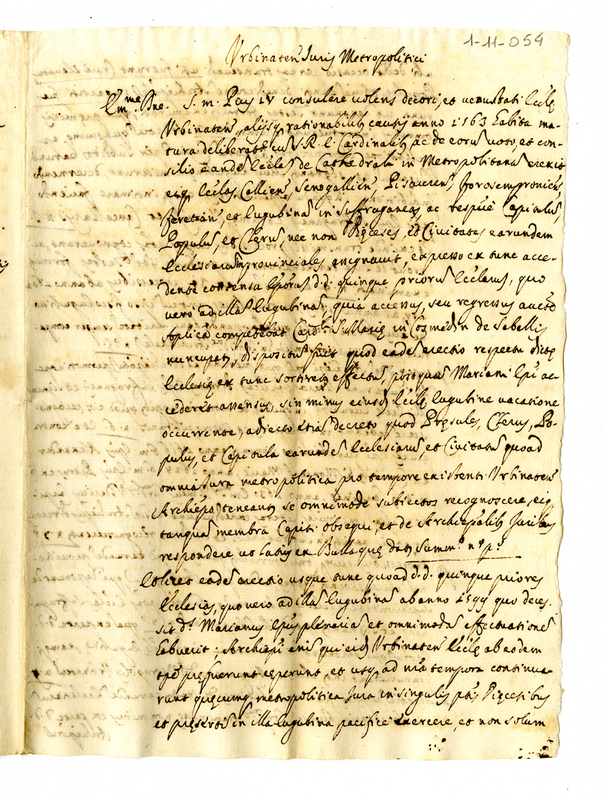 1-11-054
Urbinaten Juris Metropolitici
Em̃me Dñe. S. m. Pius IV consulere volens decori, et venustati Eccl̃ę
Urbinaten, alijsq̃ rationabilib̃ causis anno 1563 habita ma-
tura deliberat̃ cum S.R.E. Cardinalib̃ ac de eorum voto, et con-
silio eandẽ Eccl̃am de Cathedrali in Metropolitanã erexit
eiq̃ Eccl̃as Callien, Senogallien, Pisaurien, Forosempronien,
Feretran, et Eugubinã in suffraganeas, ac respue Capitulũ,
Populũ, et Clerũ, nec non Dięceses, et Civitates earundem
Ecclesiarum provinciales assignavit, expresso ex tunc acce-
dente consensu Ep̃orum d.d. quinque priorum Eccl̃arum, quo
vero ad illã Eugubinã, quia accessus, seu regressus aucte
Aplica competebat Card. S. Marię in Cosmedin de Sabellis
nuncupat, dispositũ fuit quod eadẽ erectio respectu dictę
Ecclesię ex tunc sortiretur effectũ, postquã Mariani Ep̃i ac-
cederet assensus, sin minus eiusdẽ Eccl̃ę Eugubine vacatione
occurrente, adiecto etiã decreto quod Pręsules, Clerus, Po-
pulus, et Capitula earundẽ Ecclesiarũ et Civitatũ quoad
omnia iura metropolitica pro tempore existenti Urbinaten
Archiep̃o teneant se omnimodè subiectos recognoscere, eiq̃
tanquã membra Capiti obsequi, et de Archiep̃alib̃ Juribus
respondere ut latius ex Bulla quę dat̃ Summ.o n.o p.o
Et licet eadẽ erectio usque tunc quoad d.d. quinque priores
Ecclesias, quo vero ad illã Eugubinã ab anno 1599 quo deces-
sit d.s Marianus Ep̃us plenariã et omnimodã effectuationẽ
habuerit: Archiep̃i enim qui eidẽ Urbinaten Eccl̃ę ab eodem
tp̃e pręfuerunt ceperunt, et usq̃ ad nr̃a tempora continua-
runt quęcumq̃ metropolitica Jura in singulis ptis Diecesibus
et pręsertim in illa Eugubina pacificè exercere, et non solum